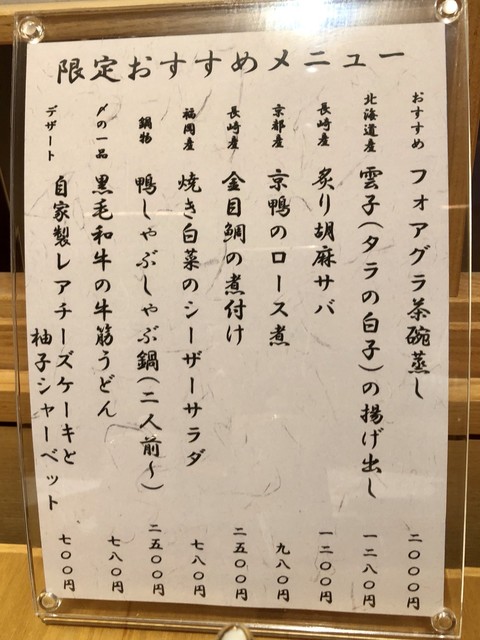 限定おすすめメニュー
おすすめ フォアグラ茶碗蒸し 二〇〇〇円
北海道産 雲子(タラの白子)の揚げ出し 一二八〇円
長崎産 炙り胡麻サバ 一二〇〇円
京都産 京鴨のロース煮 九八〇円
長崎産 金目鯛の煮付け 二五〇〇円
福岡産 焼き白菜のシーザーサラダ 七八〇円
鍋物 鴨しゃぶしゃぶ鍋(二人前〜) 二五〇〇円
〆の一品 黒毛和牛の牛筋うどん 七八〇円
デザート 自家製レアチーズケーキと
柚子シャーベット 七〇〇円